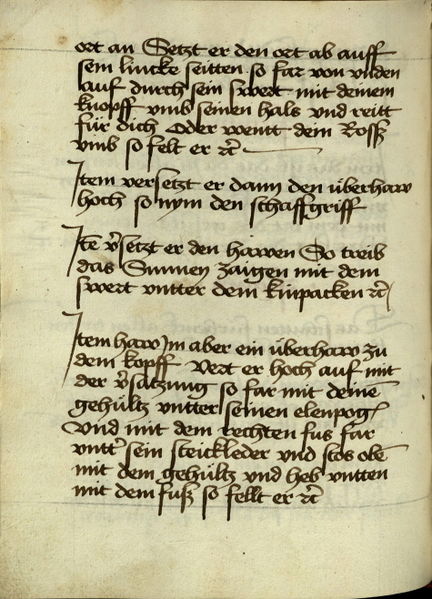 ort an Setzt er den ort ab auff
sein lincke seitten so far von vnden
auf durch sein swert mit deinem
knopff vmb seinen hals vnd reitt
für dich Oder wentt dem Roß
vmb so felt er ꝛc
Item versetzt er dann den überhaw
hoch so nym den schaffgriff
Itē v̉setzt er den hawen So treib
das Sunnen zaigen mit dem
swert vntter dem kinpacken ꝛc
Item haw Im aber ein überhaw zu
dem kopff Vert er hoch auf mit
der v̉satzung so far mit deinē
gehültz vntter seinen elenpog
Vnd mit dem rechten fus far
vntt̉ sein steickleder vnd stos obē
mit dem gehültz vnd heb vntten
mit dem fuß so fellt er ꝛc